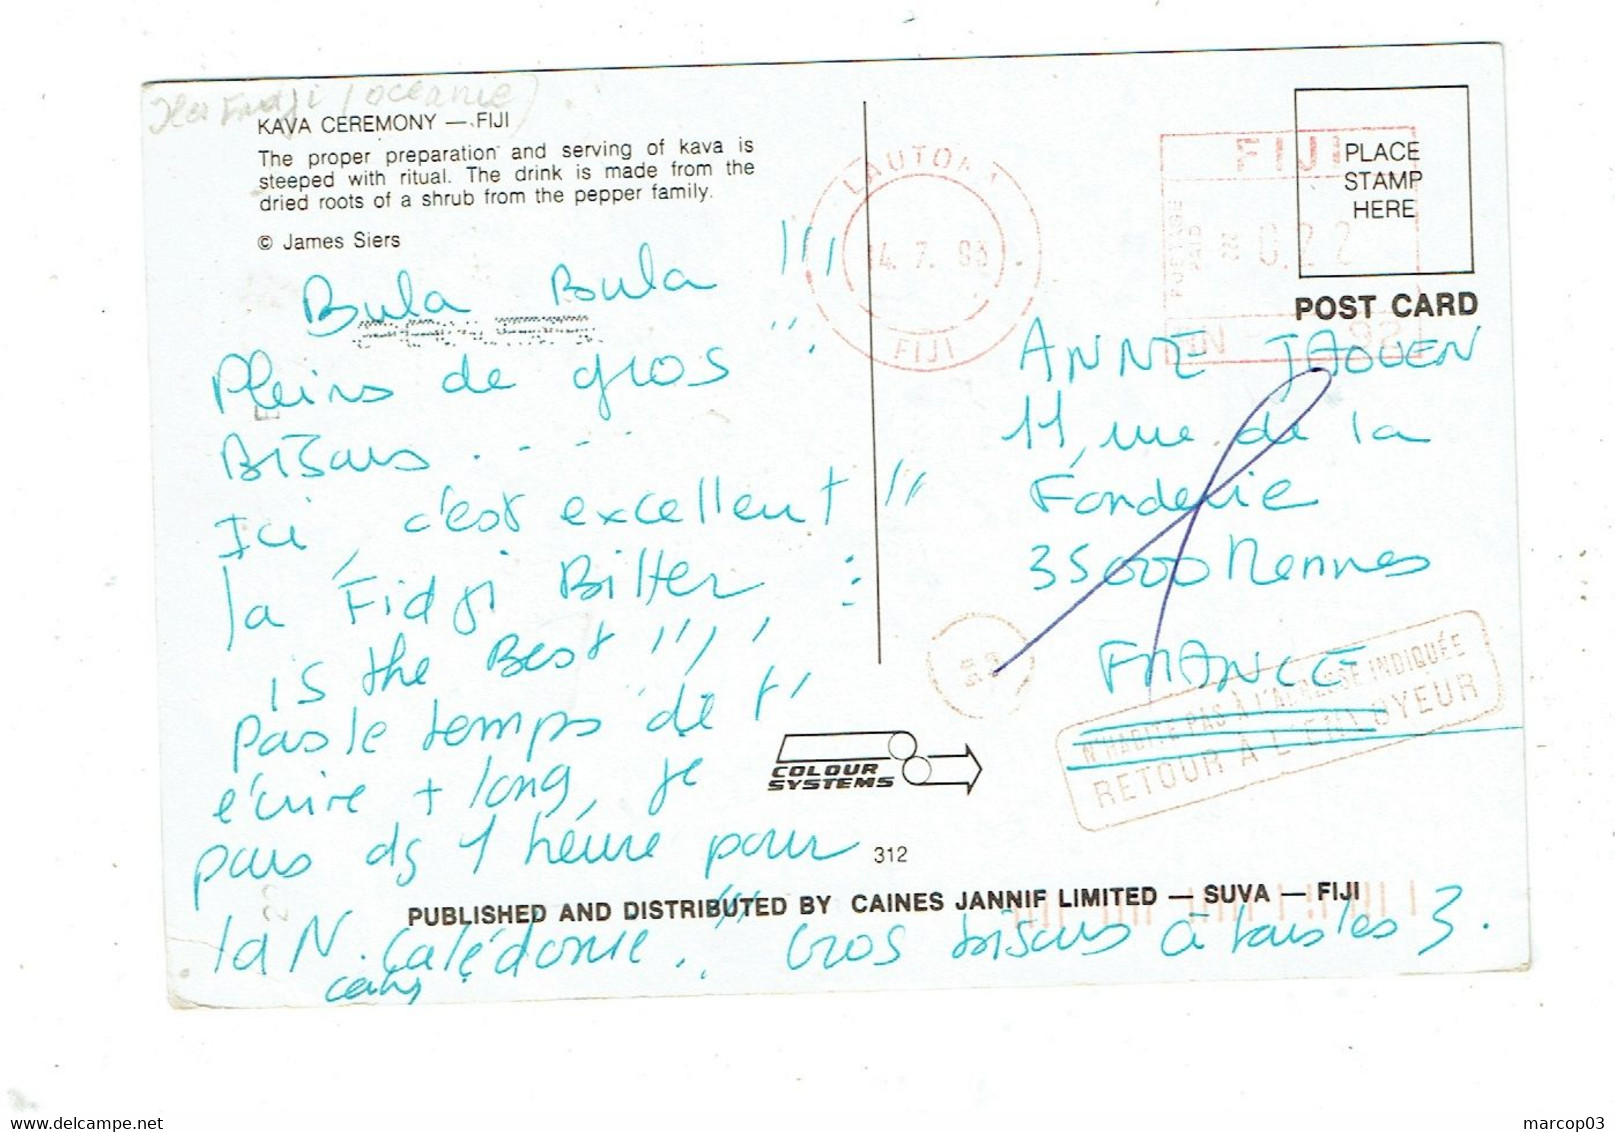 Iles Fidji (océanie)
KAVA CEREMONY — FIJI
The proper preparation and serving of kava is
steeped with ritual. The drink is made from the
dried roots of a shrub from the pepper family.
© James Siers
Bula Bula !!!
Pleins de gros
Bisous ....
Ici, c'est excellent !!
la Fidji Bitter
is the Best !!!!
Pas le temps de t'
écrire + long, je
pars ds 1 heure pour
la N. Calédonie !!!
Gros bisous à tous les 3.
LAUTOKA
14.7.93
FIJI
FIJI
POSTAGE
PAID
0.22
PLACE
STAMP
HERE
POST CARD
ANNE JAOUEN
11, rue de la
Fonderie
35000 Rennes
FRANCE
N'HABITE PAS À L'ADRESSE INDIQUÉE
RETOUR À L'ENVOYEUR
COLOUR
SYSTEMS
312
PUBLISHED AND DISTRIBUTED BY CAINES JANNIF LIMITED — SUVA — FIJI
marcop03